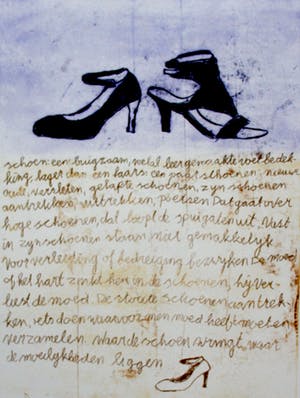 schoen: een buigzaam, metal leer gemaakte voet bedek-
king, lager dan een laars: een paar schoenen, nieuwe
oude, versleten, gelapte schoenen, zyn schoenen
aantrekken, uittrekken, poetsen Dat gaat over
hoge schoenen, dat loopt de spuigaten uit. Vast
in zyn schoenen staan, niet gemakkelyk
voor verleiding of bedreiging bezwyken De moed
of het hart zinkt hen in de schoenen, hy ver-
liest de moed. De stoute schoenen aantrek-
ken, iets doen waarvoor men moed heeft moeten
verzamelen. waar de schoen wringt, waar
de moeilykheden liggen